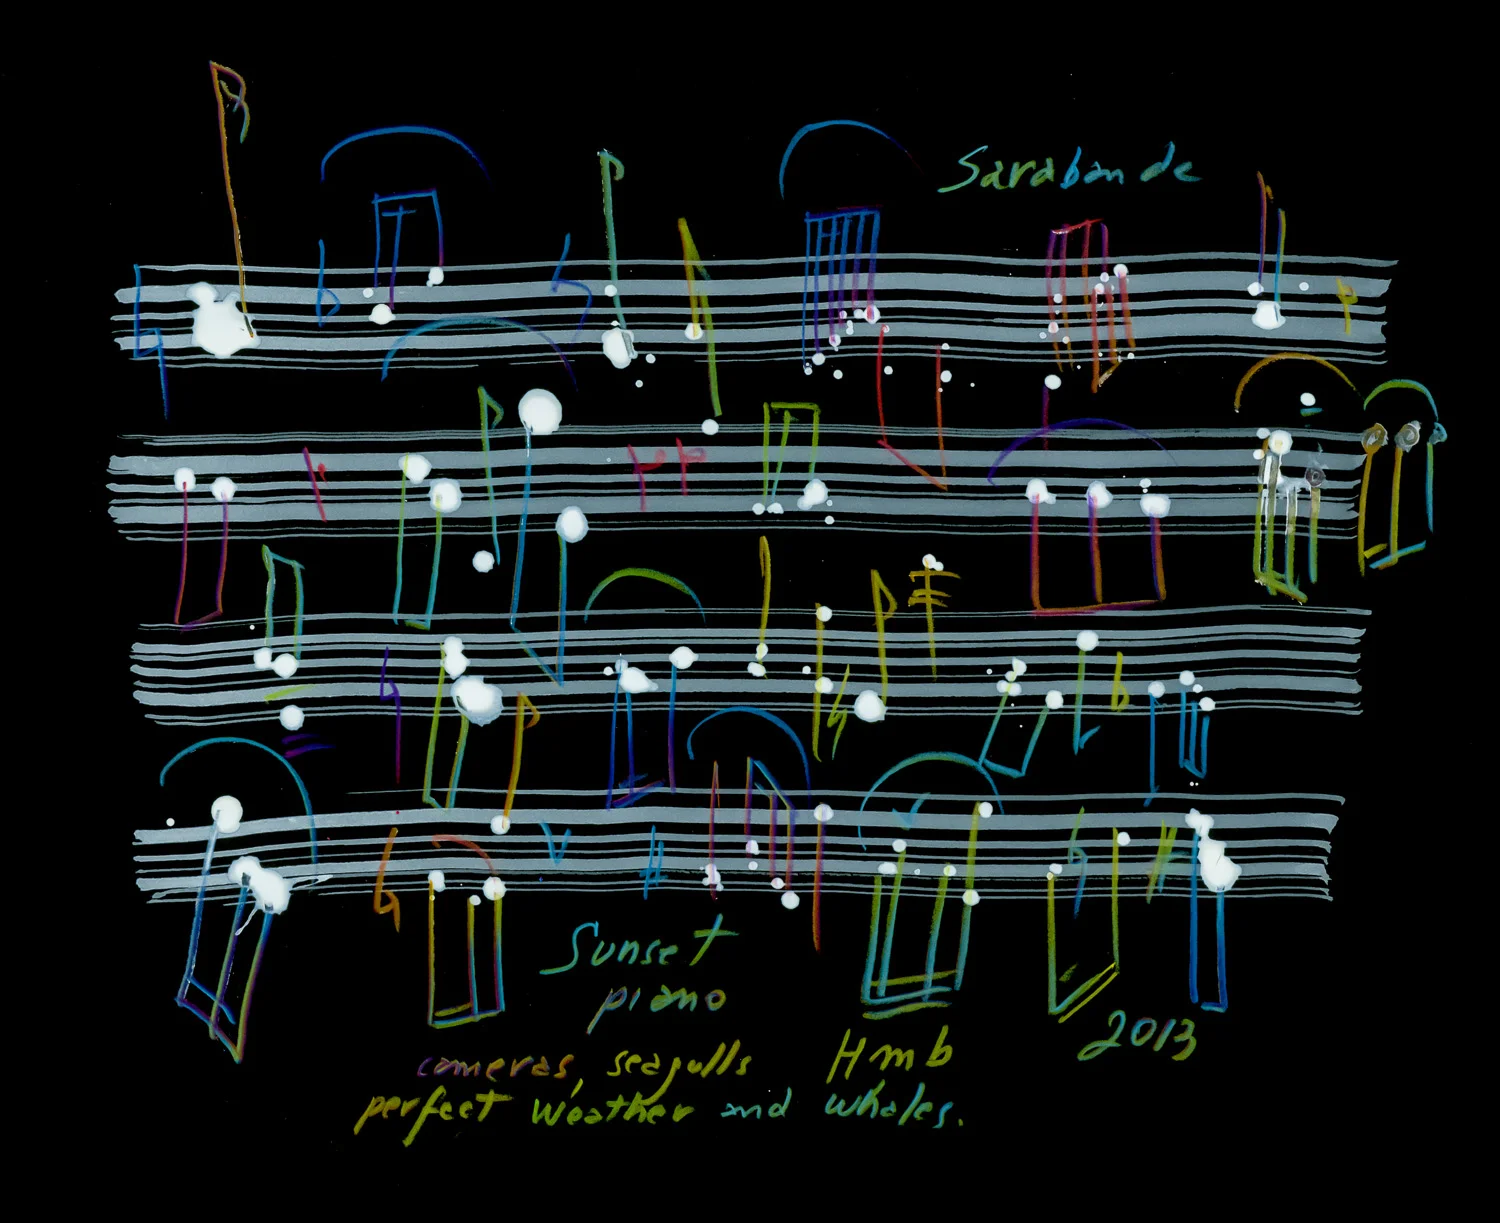 Sarabande
Sunset
piano
cameras, seagulls
Hmb
2013
perfect weather and whales.